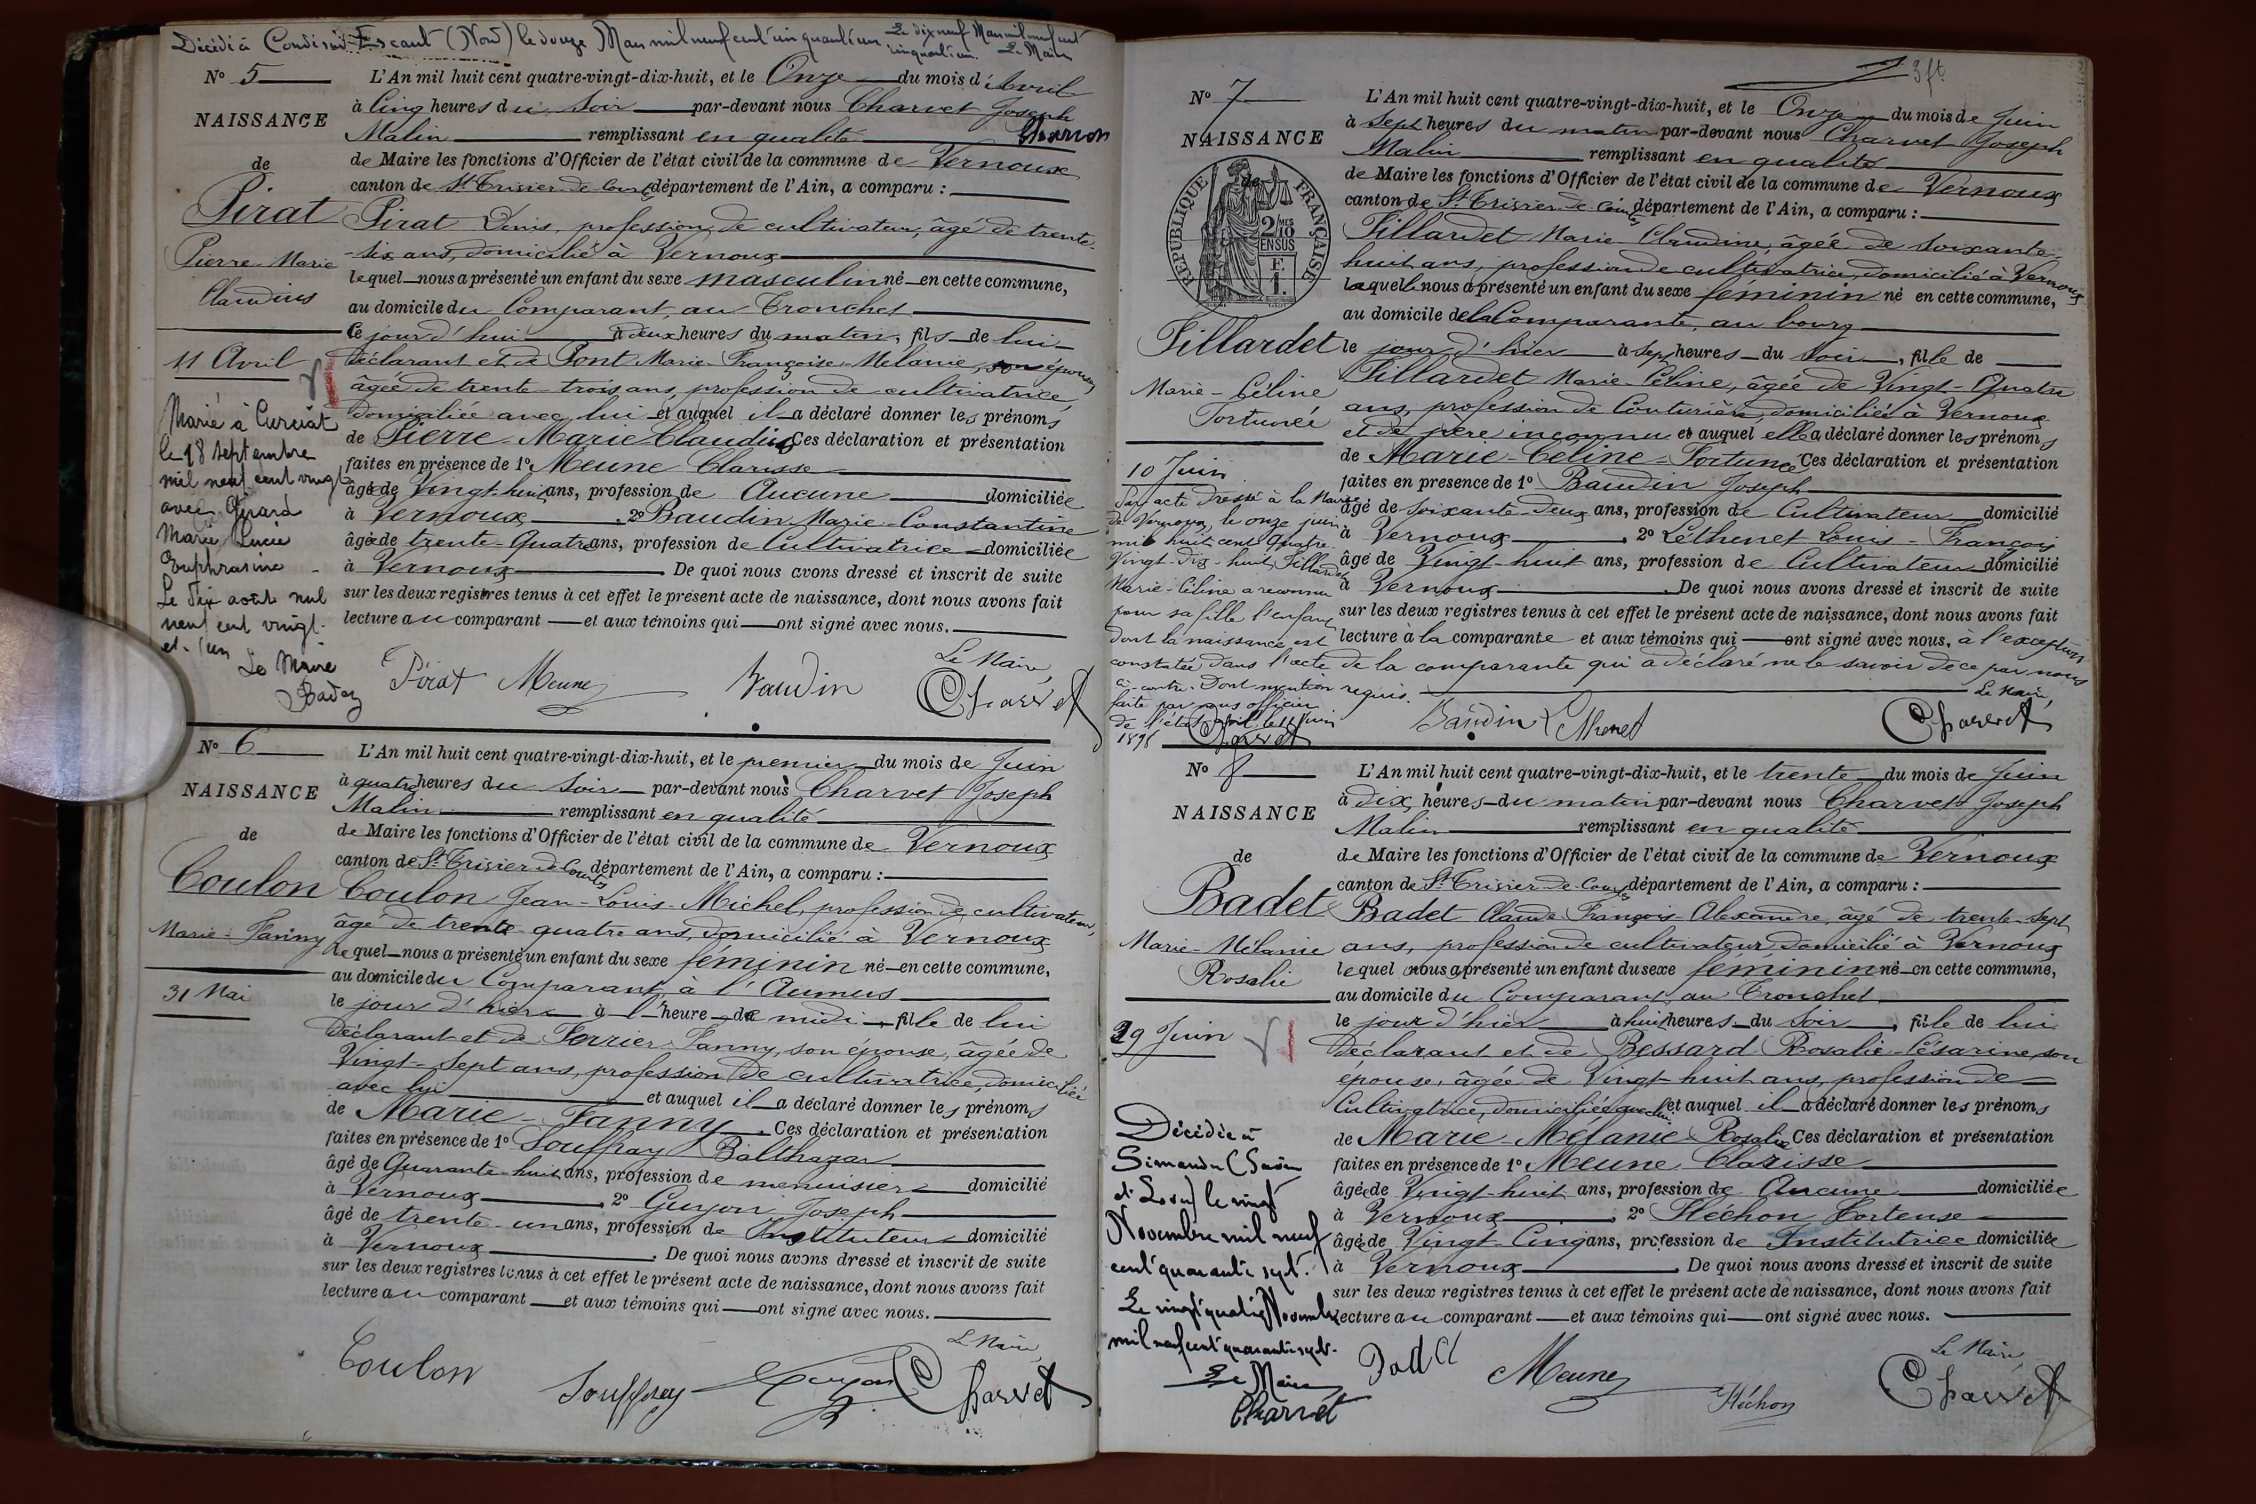 Décédé à Condé sur Escaut (Nord) le douze Mars mil neuf cent cinquante un Le dix neuf Mars mil neuf cent
cinquante un. Le Maire
Charvet
N° 5
NAISSANCE
de
Pirat
Pierre Marie
Claudius
11 Avril
Marié à Curciat
le 18 septembre
mil neuf cent vingt
avec Girard
Marie Lucie
Euphrasine
Le dix août mil
neuf cent vingt-
et-un
Le Maire
Badez
L'An mil huit cent quatre-vingt-dix-huit, et le Onze du mois d'Avril
à Cinq heures du Soir par-devant nous Charvet Joseph
Malin remplissant en qualité
de Maire les fonctions d'Officier de l'état civil de la commune de Vernoux
canton de St Trivier de Courtes département de l'Ain, a comparu :
Pirat Denis, profession de cultivateur, âgé de trente-
-six ans, domicilié à Vernoux
lequel nous a présenté un enfant du sexe masculin né en cette commune,
au domicile du Comparant, au Tronchet
Ce jour d'hui à deux heures du matin, fils de lui
déclarant et de Pont Marie-Françoise-Mélanie, son épouse,
âgée de trente-trois ans, profession de cultivatrice
domiciliée avec lui et auquel il a déclaré donner les prénoms
de Pierre Marie Claudius Ces déclaration et présentation
faites en présence de 1° Meune Clarisse
âgée de Vingt-huit ans, profession de Aucune domiciliée
à Vernoux, 2° Baudin Marie-Constantine
âgée de trente-Quatre ans, profession de Cultivatrice domiciliée
à Vernoux. De quoi nous avons dressé et inscrit de suite
sur les deux registres tenus à cet effet le présent acte de naissance, dont nous avons fait
lecture au comparant et aux témoins qui ont signé avec nous.
Le Maire,
Pirat Meune Baudin Charvet
N° 6
NAISSANCE
de
Coulon
Marie-Fanny
31 Mai
L'An mil huit cent quatre-vingt-dix-huit, et le premier du mois de Juin
à quatre heures du Soir par-devant nous Charvet Joseph
Malin remplissant en qualité
de Maire les fonctions d'Officier de l'état civil de la commune de Vernoux
canton de St Trivier de Courtes département de l'Ain, a comparu :
Coulon Jean-Louis-Michel, profession de cultivateur,
âgé de trente-quatre ans, domicilié à Vernoux
lequel nous a présenté un enfant du sexe féminin né en cette commune,
au domicile du Comparant, à l'Aumus
le jour d'hier à l' heure de midi, fille de lui
déclarant et de Perrier Fanny, son épouse, âgée de
Vingt-sept ans, profession de cultivatrice, domiciliée
avec lui et auquel il a déclaré donner les prénoms
de Marie-Fanny. Ces déclaration et présentation
faites en présence de 1° Souffray Balthazar
âgé de Quarante-huit ans, profession de menuisier domicilié
à Vernoux, 2° Guyon Joseph
âgé de trente-un ans, profession de Instituteur domicilié
à Vernoux. De quoi nous avons dressé et inscrit de suite
sur les deux registres tenus à cet effet le présent acte de naissance, dont nous avons fait
lecture au comparant et aux témoins qui ont signé avec nous.
Le Maire,
Coulon Souffray Guyon Charvet
3 ft
N° 7
NAISSANCE
de
RÉPUBLIQUE FRANÇAISE
2/10 MES
EN SUS
F.
1.
Pillardet
Marie-Céline
Fortunée
10 Juin
Par acte dressé à la Mairie
de Vernoux, le onze juin
mil huit cent quatre-
Vingt-Dix-huit, Pillardet
Marie-Céline a reconnu
pour sa fille l'enfant
dont la naissance est
constatée dans l'acte
ci-contre. Dont mention
faite par nous officier
de l'état civil le 11 Juin
1898 Charvet
L'An mil huit cent quatre-vingt-dix-huit, et le Onze du mois de Juin
à Sept heures du matin par-devant nous Charvet Joseph
Malin remplissant en qualité
de Maire les fonctions d'Officier de l'état civil de la commune de Vernoux
canton de St Trivier-de-Courtes département de l'Ain, a comparu :
Pillardet Marie-Claudine, âgée de soixante-
huit ans, profession de cultivatrice, domiciliée à Vernoux
laquelle nous a présenté un enfant du sexe féminin né en cette commune,
au domicile de la Comparante, au bourg
le jour d'hier à Sept heures du soir, fille de
Pillardet Marie-Céline, âgée de Vingt-Quatre
ans, profession de Couturière, domiciliée à Vernoux
et de père inconnu et auquel elle a déclaré donner les prénoms
de Marie-Céline-Fortunée Ces déclaration et présentation
faites en présence de 1° Baudin Joseph
âgé de soixante-deux ans, profession de Cultivateur domicilié
à Vernoux, 2° Léthenet Louis-François
âgé de Vingt-huit ans, profession de Cultivateur domicilié
à Vernoux. De quoi nous avons dressé et inscrit de suite
sur les deux registres tenus à cet effet le présent acte de naissance, dont nous avons fait
lecture à la comparante et aux témoins qui ont signé avec nous, à l'exception
de la comparante qui a déclaré ne le savoir de ce par nous
requis.
Le Maire,
Baudin Léthenet Charvet
N° 8
NAISSANCE
de
Badet
Marie-Mélanie
Rosalie
29 Juin
Décédée à
Simandre (Saône
et Loire) le vingt
Novembre mil neuf
cent quarante sept.
Le vingt quatre Novembre
mil neuf cent quarante sept.
Le Maire
Charvet
L'An mil huit cent quatre-vingt-dix-huit, et le trente du mois de Juin
à Dix heures du matin par-devant nous Charvet Joseph
Malin remplissant en qualité
de Maire les fonctions d'Officier de l'état civil de la commune de Vernoux
canton de St Trivier-de-Courtes département de l'Ain, a comparu :
Badet Claude François-Alexandre, âgé de trente-sept
ans, profession de cultivateur, domicilié à Vernoux
lequel nous a présenté un enfant du sexe féminin né en cette commune,
au domicile du Comparant, au Tronchet
le jour d'hier à huit heures du Soir, fille de lui
déclarant et de Bessard Rosalie-Césarine, son
épouse, âgée de Vingt-huit ans, profession de
Cultivatrice, domiciliée avec lui et auquel il a déclaré donner les prénoms
de Marie-Mélanie-Rosalie Ces déclaration et présentation
faites en présence de 1° Meune Clarisse
âgée de Vingt-huit ans, profession de Aucune domiciliée
à Vernoux, 2° Fléchon Hortense
âgée de Vingt-Cinq ans, profession de Institutrice domiciliée
à Vernoux. De quoi nous avons dressé et inscrit de suite
sur les deux registres tenus à cet effet le présent acte de naissance, dont nous avons fait
lecture au comparant et aux témoins qui ont signé avec nous.
Le Maire,
Badet Meune Fléchon Charvet